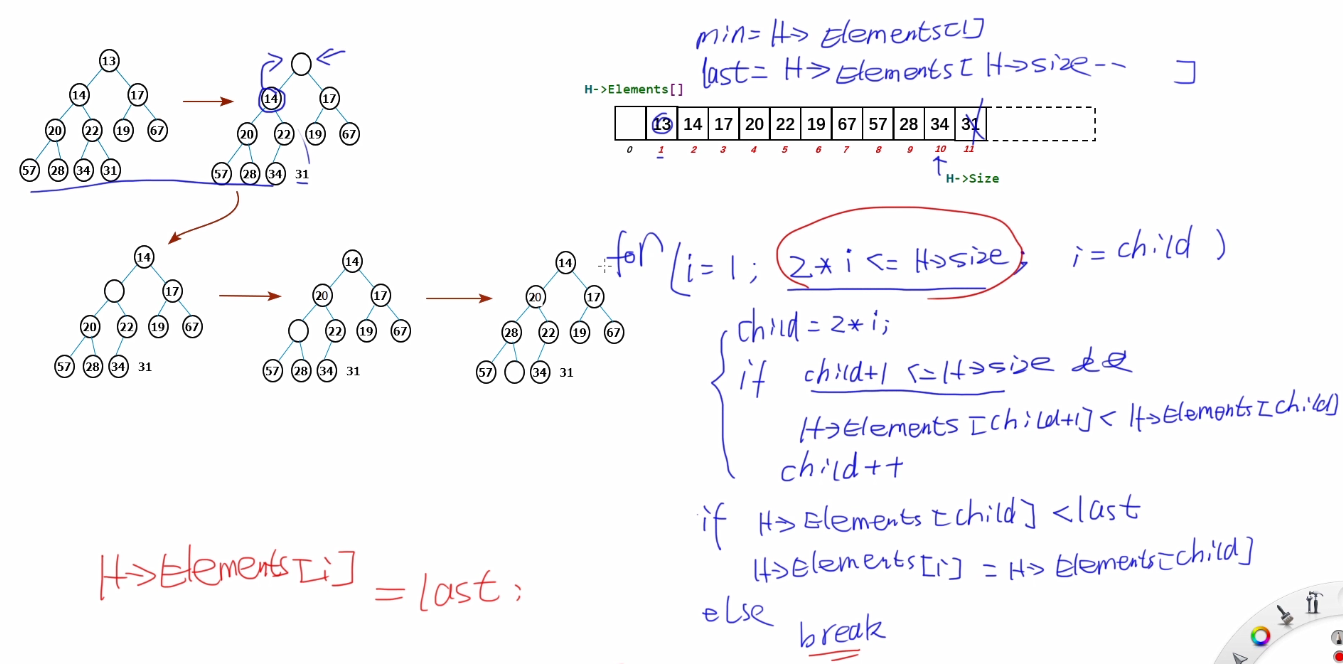 min = H-> Elements[1]
last = H-> Elements[ H->size-- ]
H->Elements[]
13 14 17 20 22 19 67 57 28 34 31
0 1 2 3 4 5 6 7 8 9 10 11
H->Size
13
14 17
20 22 19 67
57 28 34 31
14 17
20 22 19 67
57 28 34 31
14
17
20 22 19 67
57 28 34 31
14
20 17
22 19 67
57 28 34 31
14
20 17
28 22 19 67
57 34 31
for (i = 1; 2 * i <= H->size; i = child )
{ child = 2 * i;
if child+1 <= H->size &&
H->Elements [child+1] < H->Elements[child]
child++
if H-> Elements [child] < last
H->Elements[i] = H-> Elements[child]
else
break
H->Elements[i] = last;